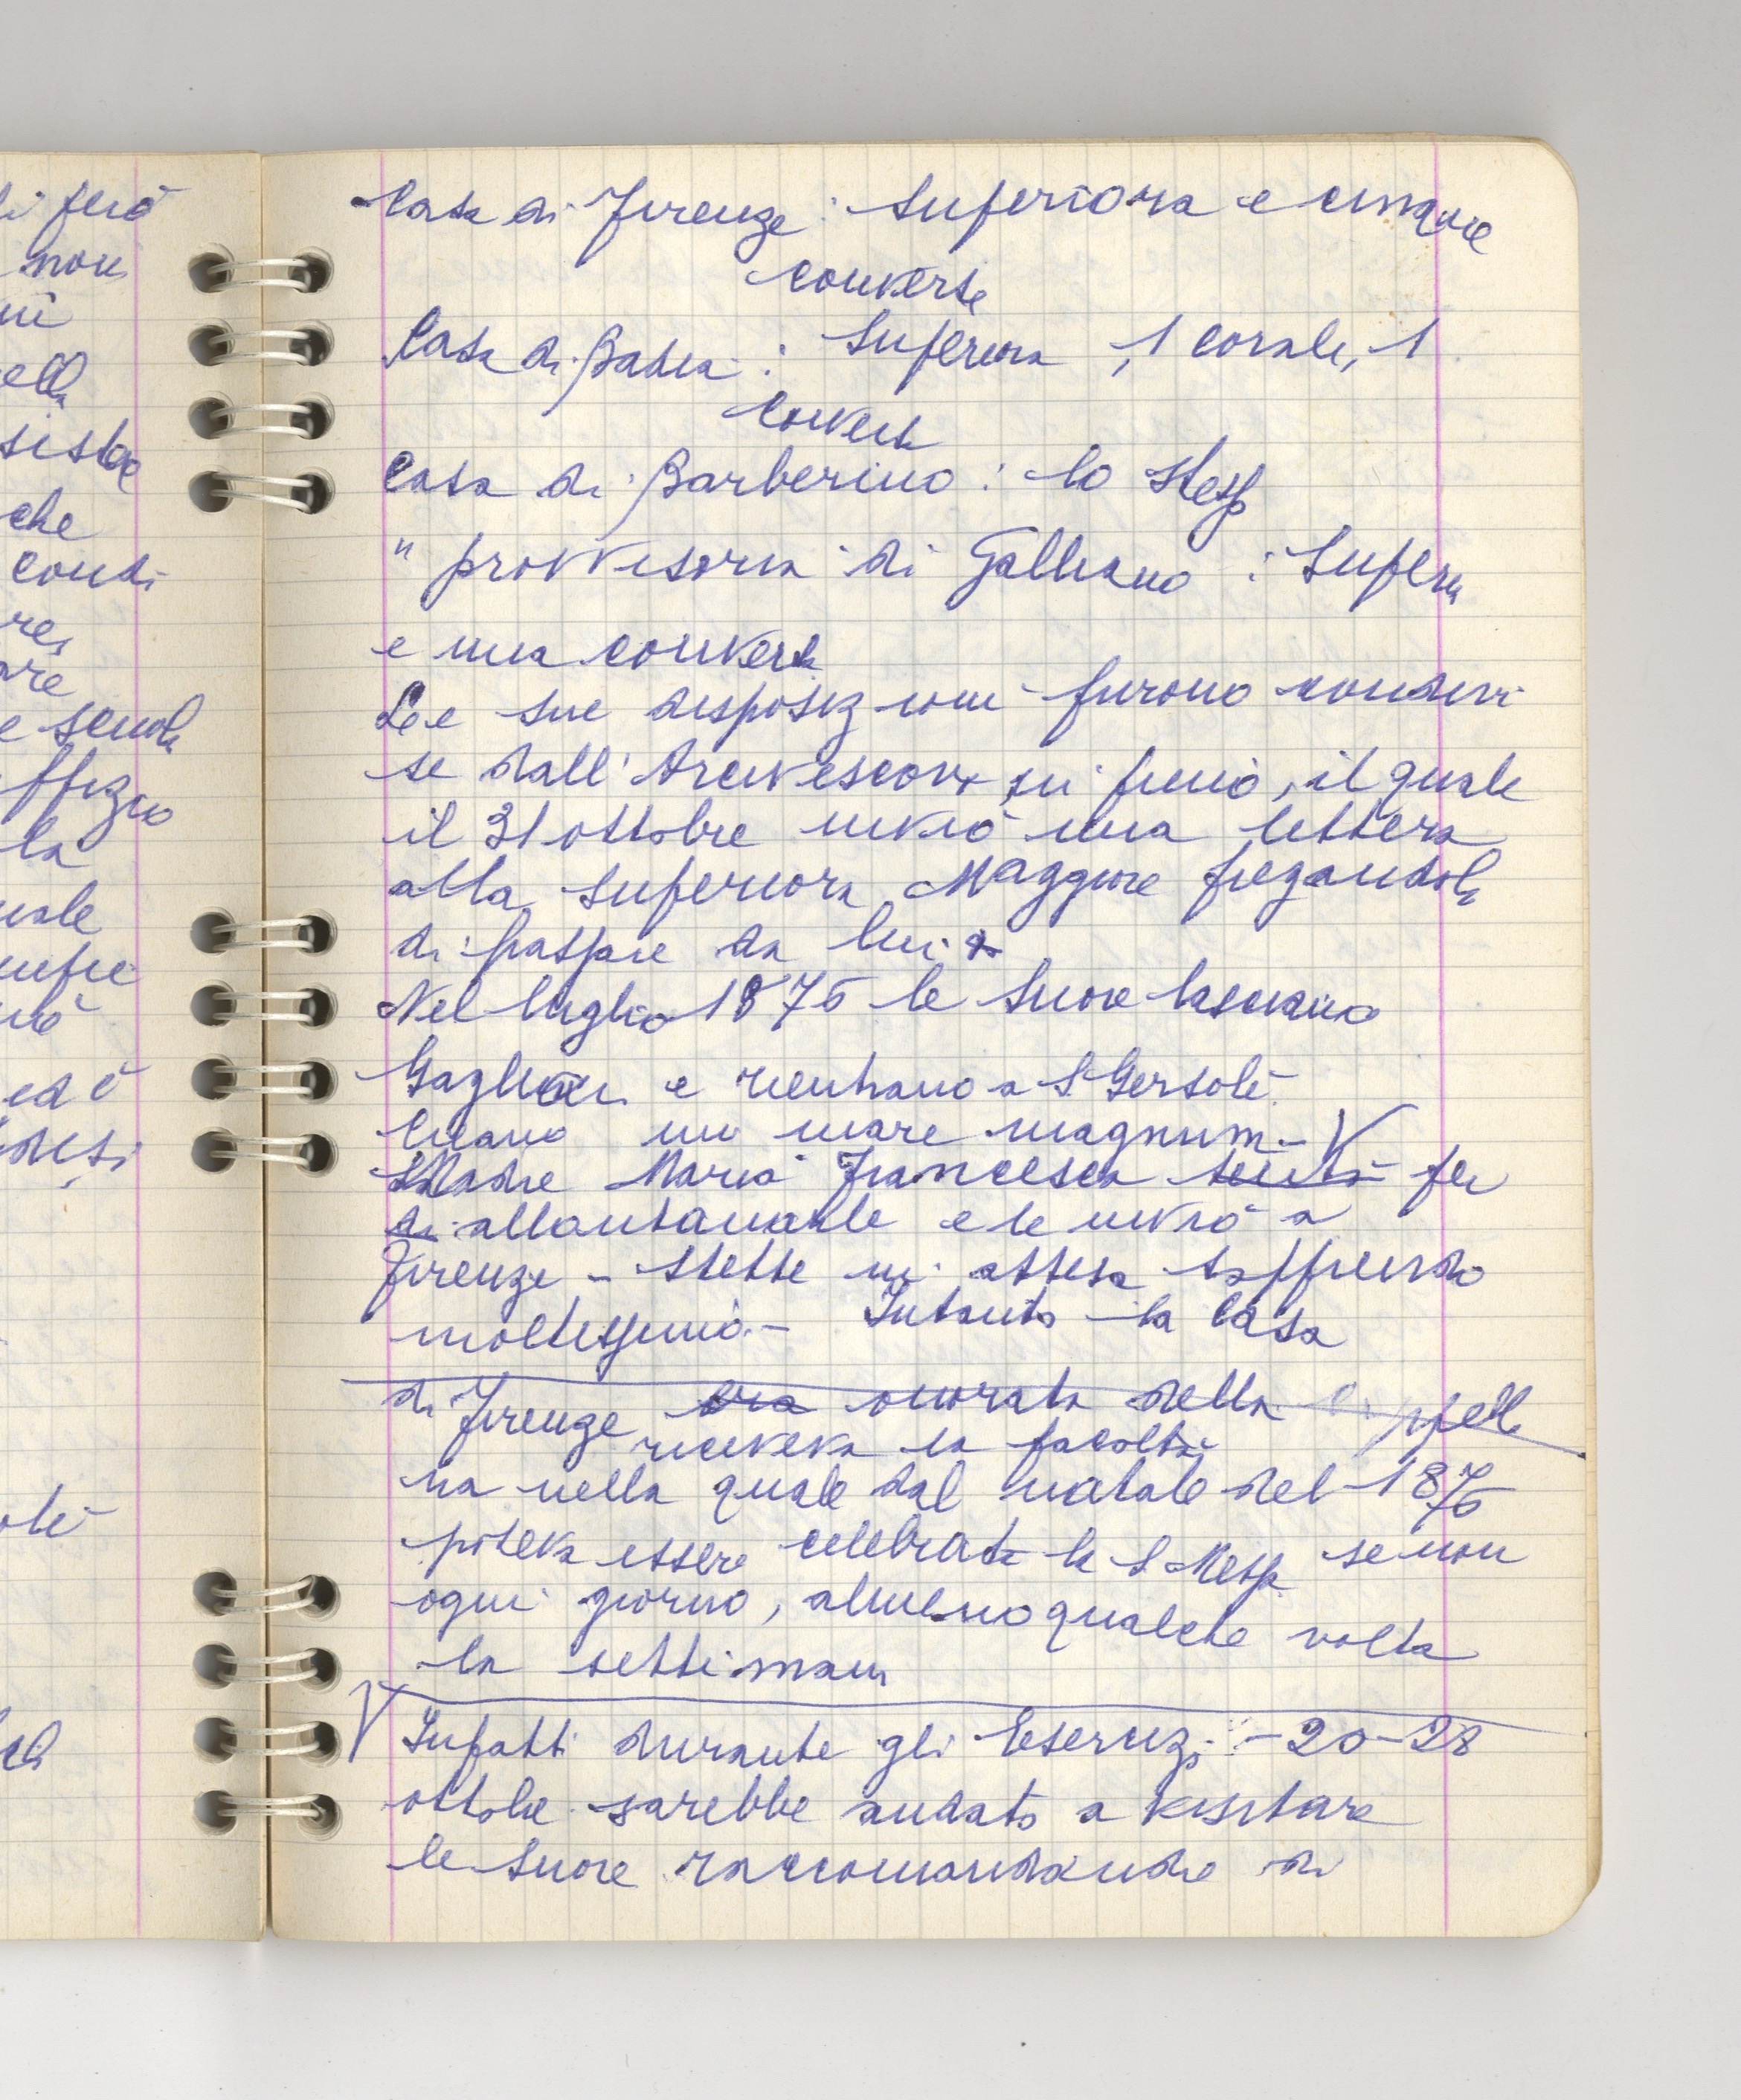 li però
non
ni
ella
siste
che
condi
res
are
e scuola
ffizio
la
uale
nè
ed è
desi
olè
Casa di Firenze : Superiora e cinque
converse
Casa di Badia : Superiora , 1 corale, 1
conversa
Casa di Barberino : lo stesso
" provvisoria di Galliano : Superiora
e una conversa
Le sue disposizioni furono condivi
se dall'Arcivescovo in pieno, il quale
il 31 ottobre inviò una lettera
alla Superiora Maggiore pregandola
di passare da lui
Nel luglio 1876 le Suore lasciano
e rientrano a S. Gersolè.
Creano un mare magnum - V
Madre Maria Francesca sentì per
di allontanarle e le inviò a
Firenze - Stette in attesa soffrendo
moltissimo. - Intanto la Casa
di Firenze era onorata della Cappell
riceveva la facoltà
na nella quale dal natale del 1876
poteva essere celebrata la S. Messa se non
ogni giorno, almeno qualche volta
la settimana
V Infatti durante gli Esercizi - 20-28
ottobre sarebbe andato a visitare
le Suore raccomandando di